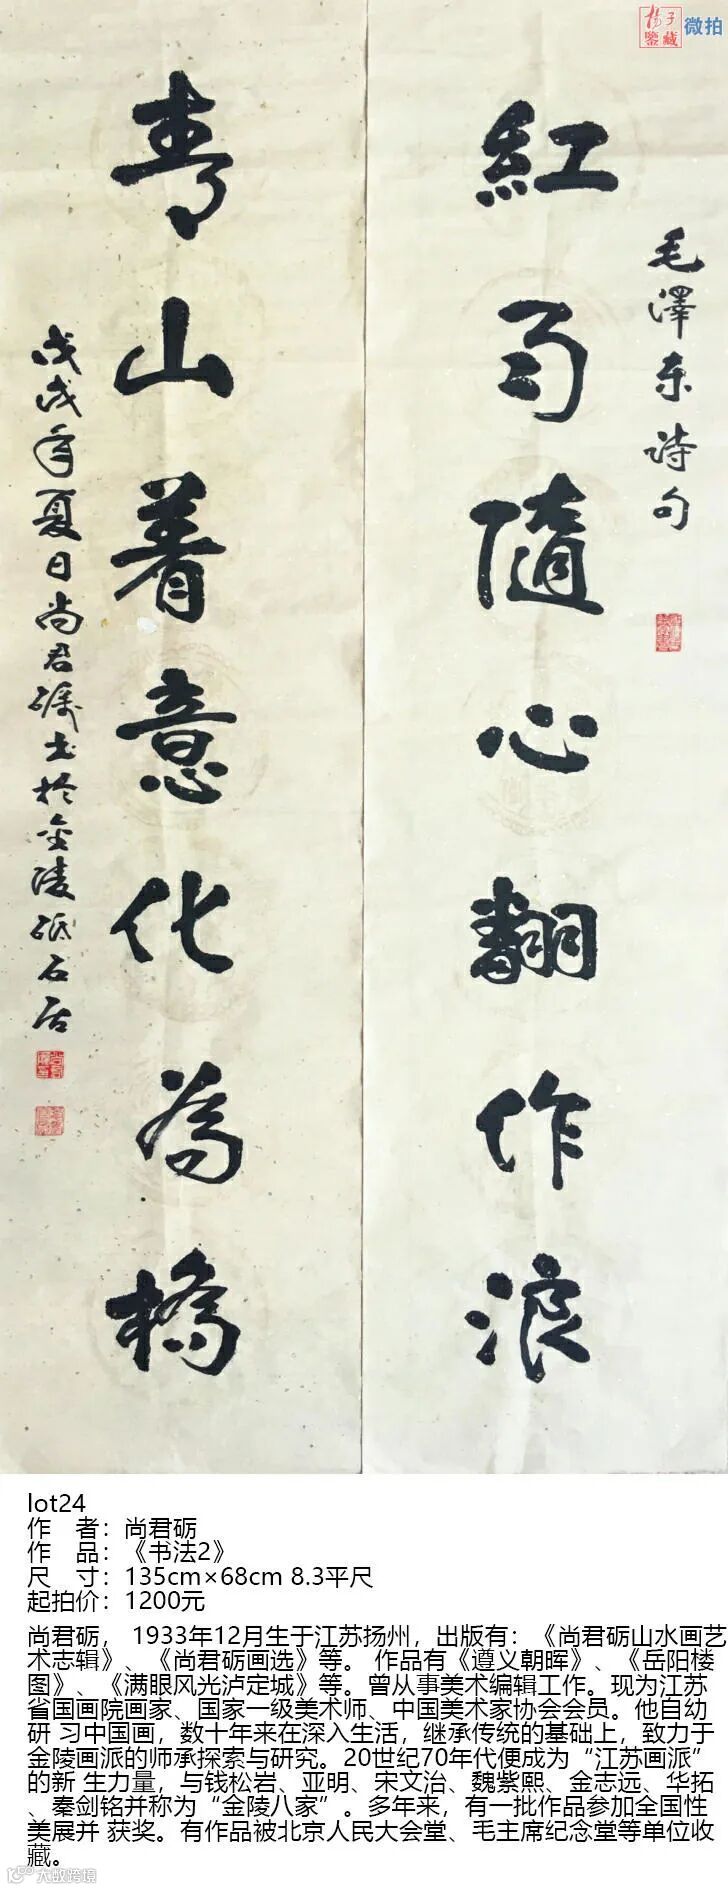 杨子
鉴藏
微拍
毛澤东詩句
紅雨隨心翻作浪
青山着意化為橋
戊戌年夏日尚君礪书於金陵砥石居
lot24
作 者：尚君砺
作 品：《书法2》
尺 寸：135cm×68cm 8.3平尺
起拍价：1200元
尚君砺， 1933年12月生于江苏扬州，出版有：《尚君砺山水画艺
术志辑》、《尚君砺画选》等。 作品有《遵义朝晖》、《岳阳楼
图》、《满眼风光泸定城》等。曾从事美术编辑工作。现为江苏
省国画院画家、国家一级美术师、中国美术家协会会员。他自幼
研 习中国画，数十年来在深入生活，继承传统的基础上，致力于
金陵画派的师承探索与研究。20世纪70年代便成为“江苏画派”
的新 生力量，与钱松岩、亚明、宋文治、魏紫熙、金志远、华拓
、秦剑铭并称为“金陵八家”。多年来，有一批作品参加全国性
美展并 获奖。有作品被北京人民大会堂、毛主席纪念堂等单位收
藏。
大数跨境